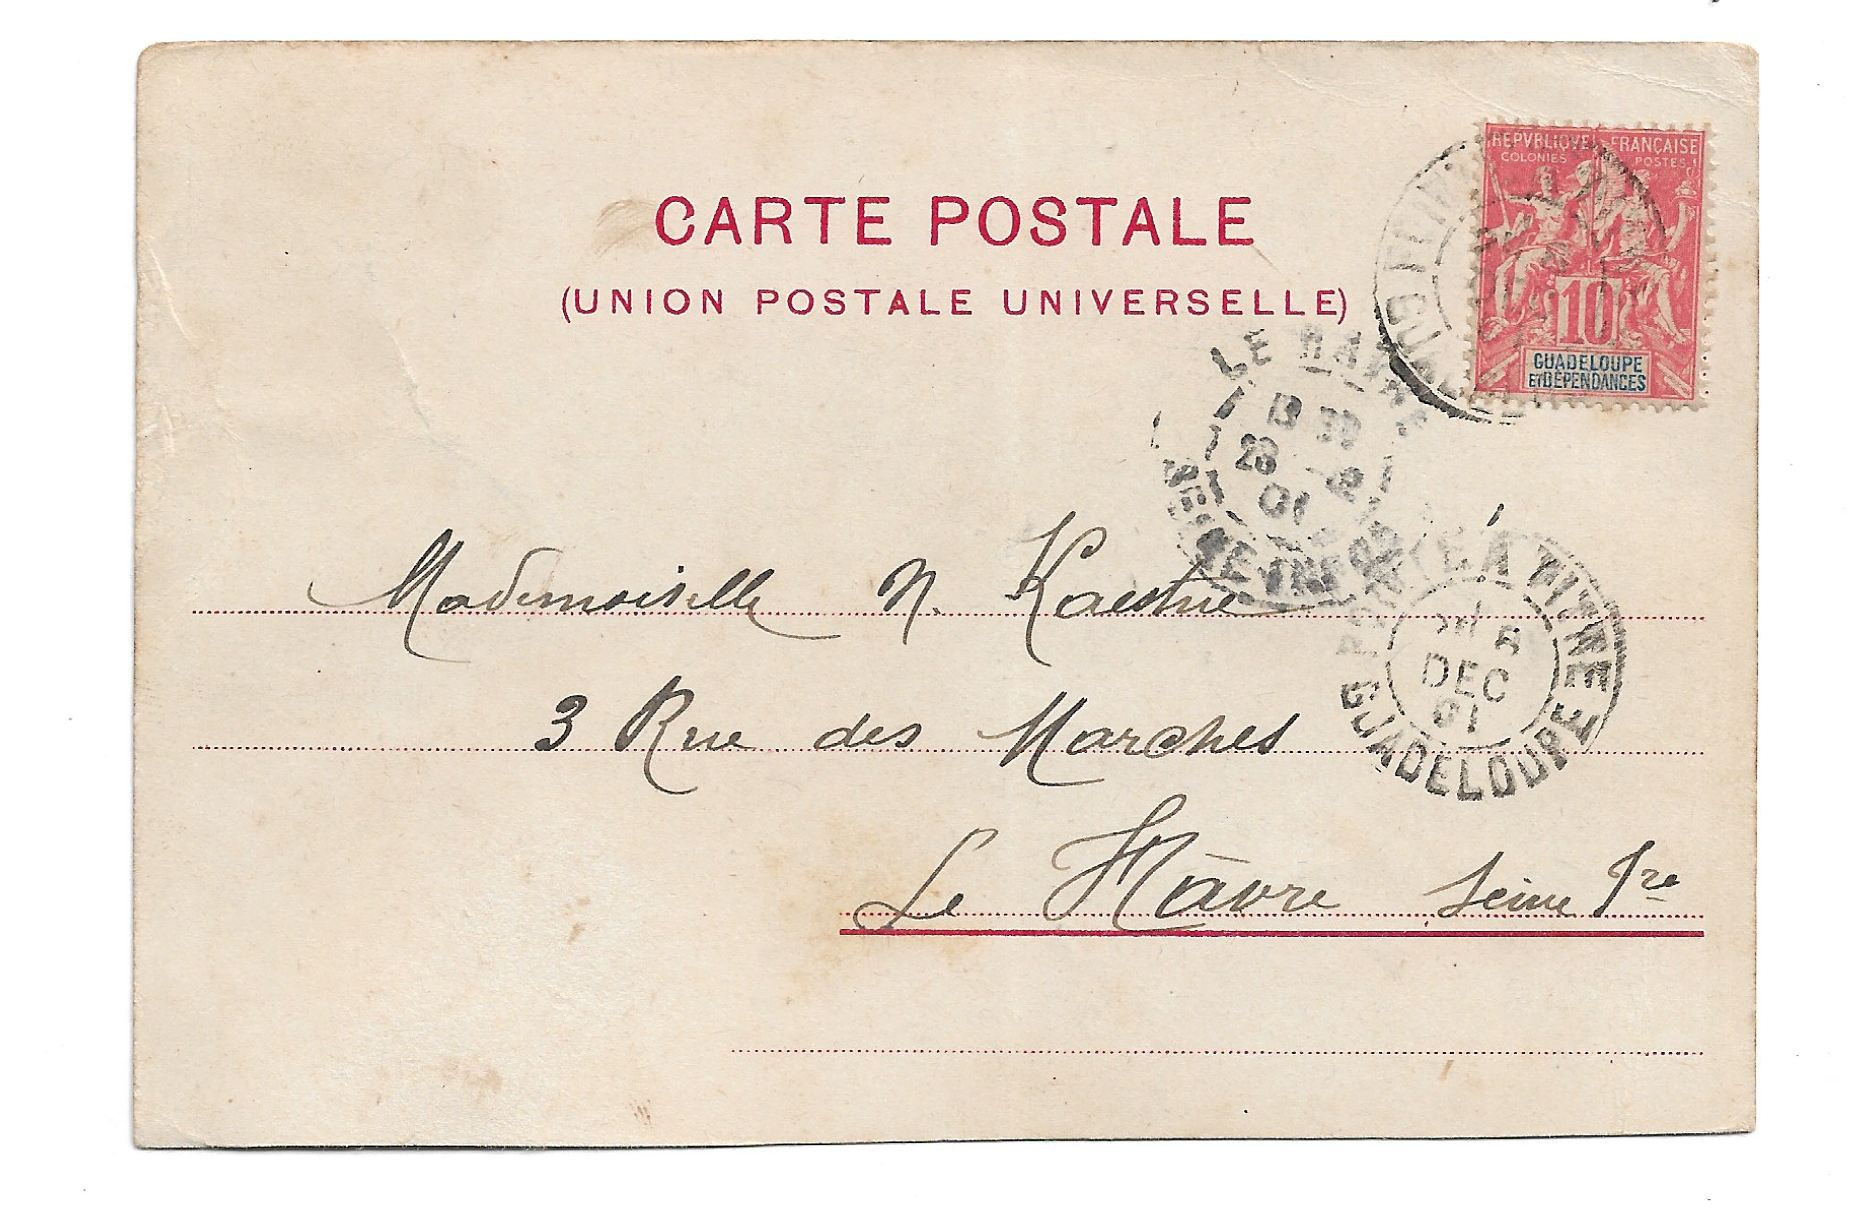 CARTE POSTALE
(UNION POSTALE UNIVERSELLE)
REPVBLIQVE FRANÇAISE
COLONIES POSTES
10
GUADELOUPE
ET DÉPENDANCES
LE HAVRE
23
01
POINTE À PITRE
DEC
01
GUADELOUPE
Mademoiselle N. Kaestne
3 Rue des Marches
Le Hàvre Seine Ire